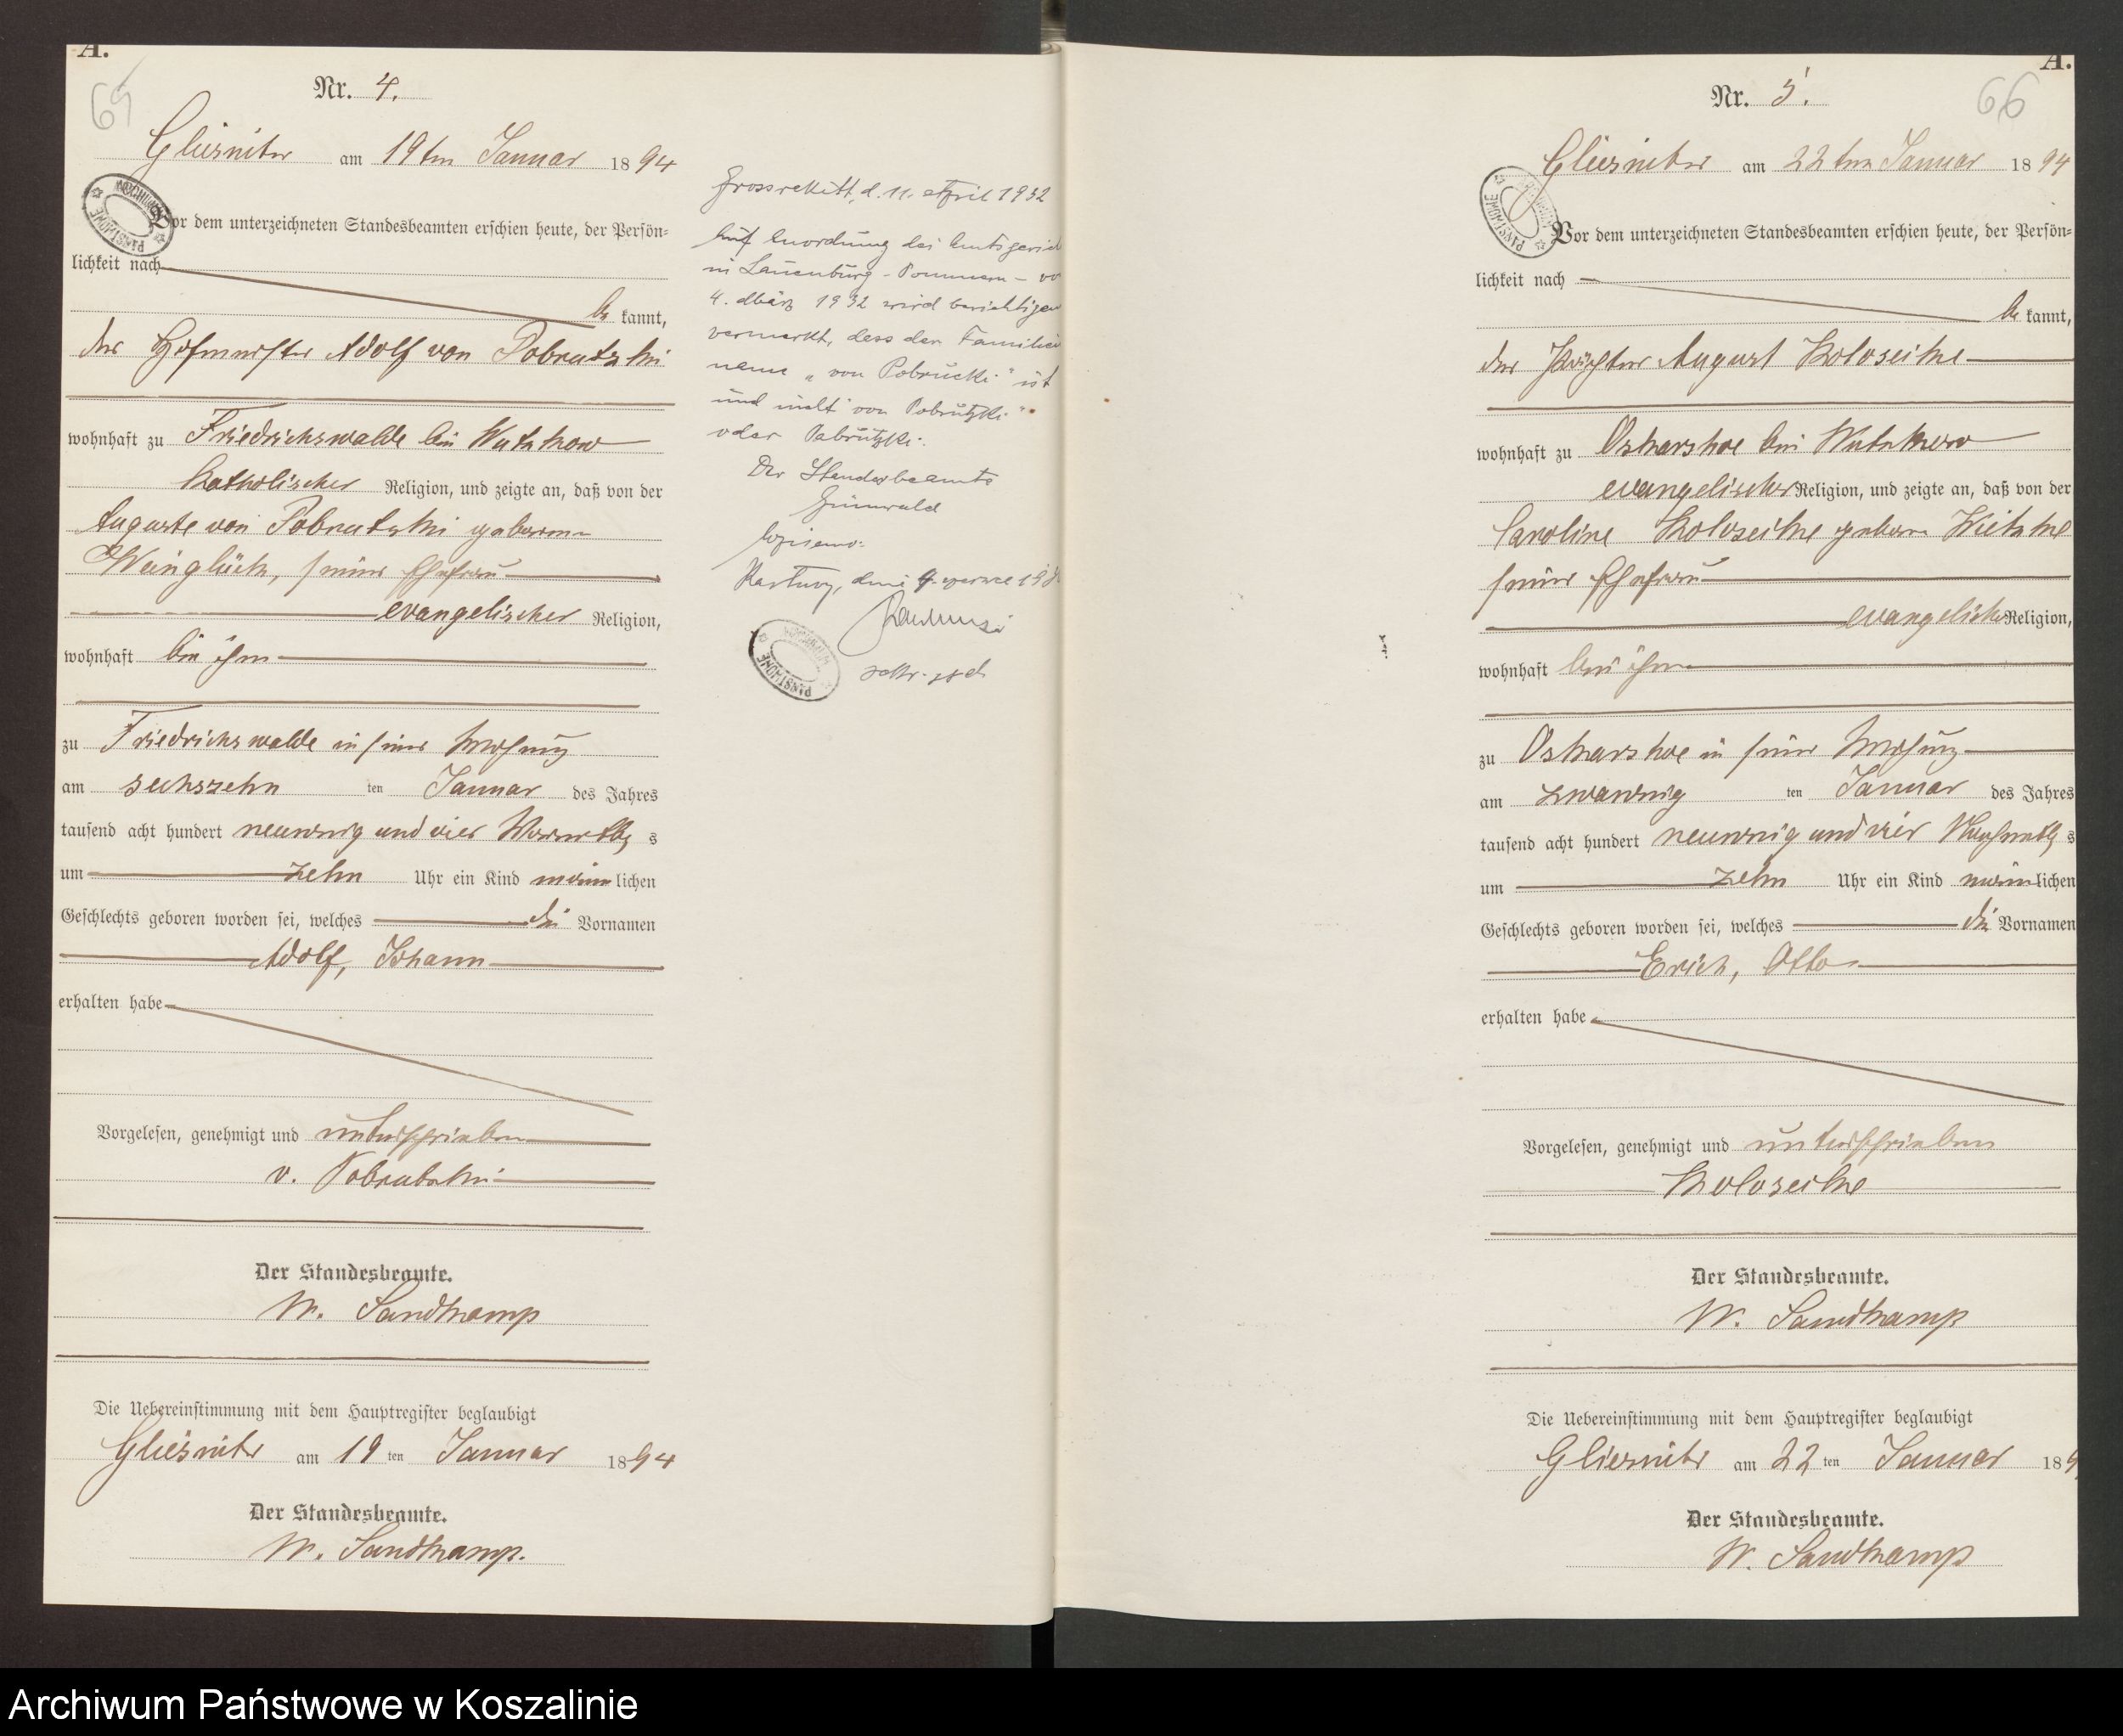 A.
65
Nr. 4.
Gliesnitz am 19ten Januar 1894
Vor dem unterzeichneten Standesbeamten erschien heute, der Persön=
lichkeit nach
be kannt,
der Hofmeister Adolf von Pobrutzki
wohnhaft zu Friedrichswalde bei Wutzkow
katholischer Religion, und zeigte an, daß von der
Auguste von Pobrutzki geborenen
Weinglück, seiner Ehefrau
evangelischer Religion,
wohnhaft bei ihm
zu Friedrichswalde in seiner Wohnung
am sechszehn ten Januar des Jahres
tausend acht hundert neunzig und vier Vormittag s
um zehn Uhr ein Kind männ lichen
Geschlechts geboren worden sei, welches die Vornamen
Adolf, Johann
erhalten habe
Vorgelesen, genehmigt und unterschrieben
v. Pobrutzki
Der Standesbeamte.
W. Sandkamp
Die Uebereinstimmung mit dem Hauptregister beglaubigt
Gliesnitz am 19 ten Januar 1894
Der Standesbeamte.
W. Sandkamp.
Grossrakitt, d. 11. April 1932
Auf Anordnung des Amtsgerich
in Lauenburg - Pommern - vo
4. März 1932 wird berichtigen
vermerkt, dass der Familien
name „von Pobrucki" ist
und nicht "von Pobrutzki"
oder Pabrutzki.
Der Standesbeamte
Grünwald
Kartuzy, dnia 9. czerwca 19
ARCHIWUM PAŃSTWOWE
A.
66
Nr. 5.
Gliesnitz am 22ten Januar 1894
Vor dem unterzeichneten Standesbeamten erschien heute, der Persön=
lichkeit nach
be kannt,
der Pächter August Koloseike
wohnhaft zu Oskarshoe bei Wutzkow
evangelischer Religion, und zeigte an, daß von der
Caroline Koloseike geboren Kietzke
seiner Ehefrau
evangelischer Religion,
wohnhaft bei ihm
zu Oskarshoe in seiner Wohnung
am zwanzig ten Januar des Jahres
tausend acht hundert neunzig und vier Nachmittag s
um zehn Uhr ein Kind männ lichen
Geschlechts geboren worden sei, welches die Vornamen
Erich, Otto
erhalten habe
Vorgelesen, genehmigt und unterschrieben
Koloseike
Der Standesbeamte.
W. Sandkamp
Die Uebereinstimmung mit dem Hauptregister beglaubigt
Gliesnitz am 22 ten Januar 189
Der Standesbeamte.
W. Sandkamp
Archiwum Państwowe w Koszalinie